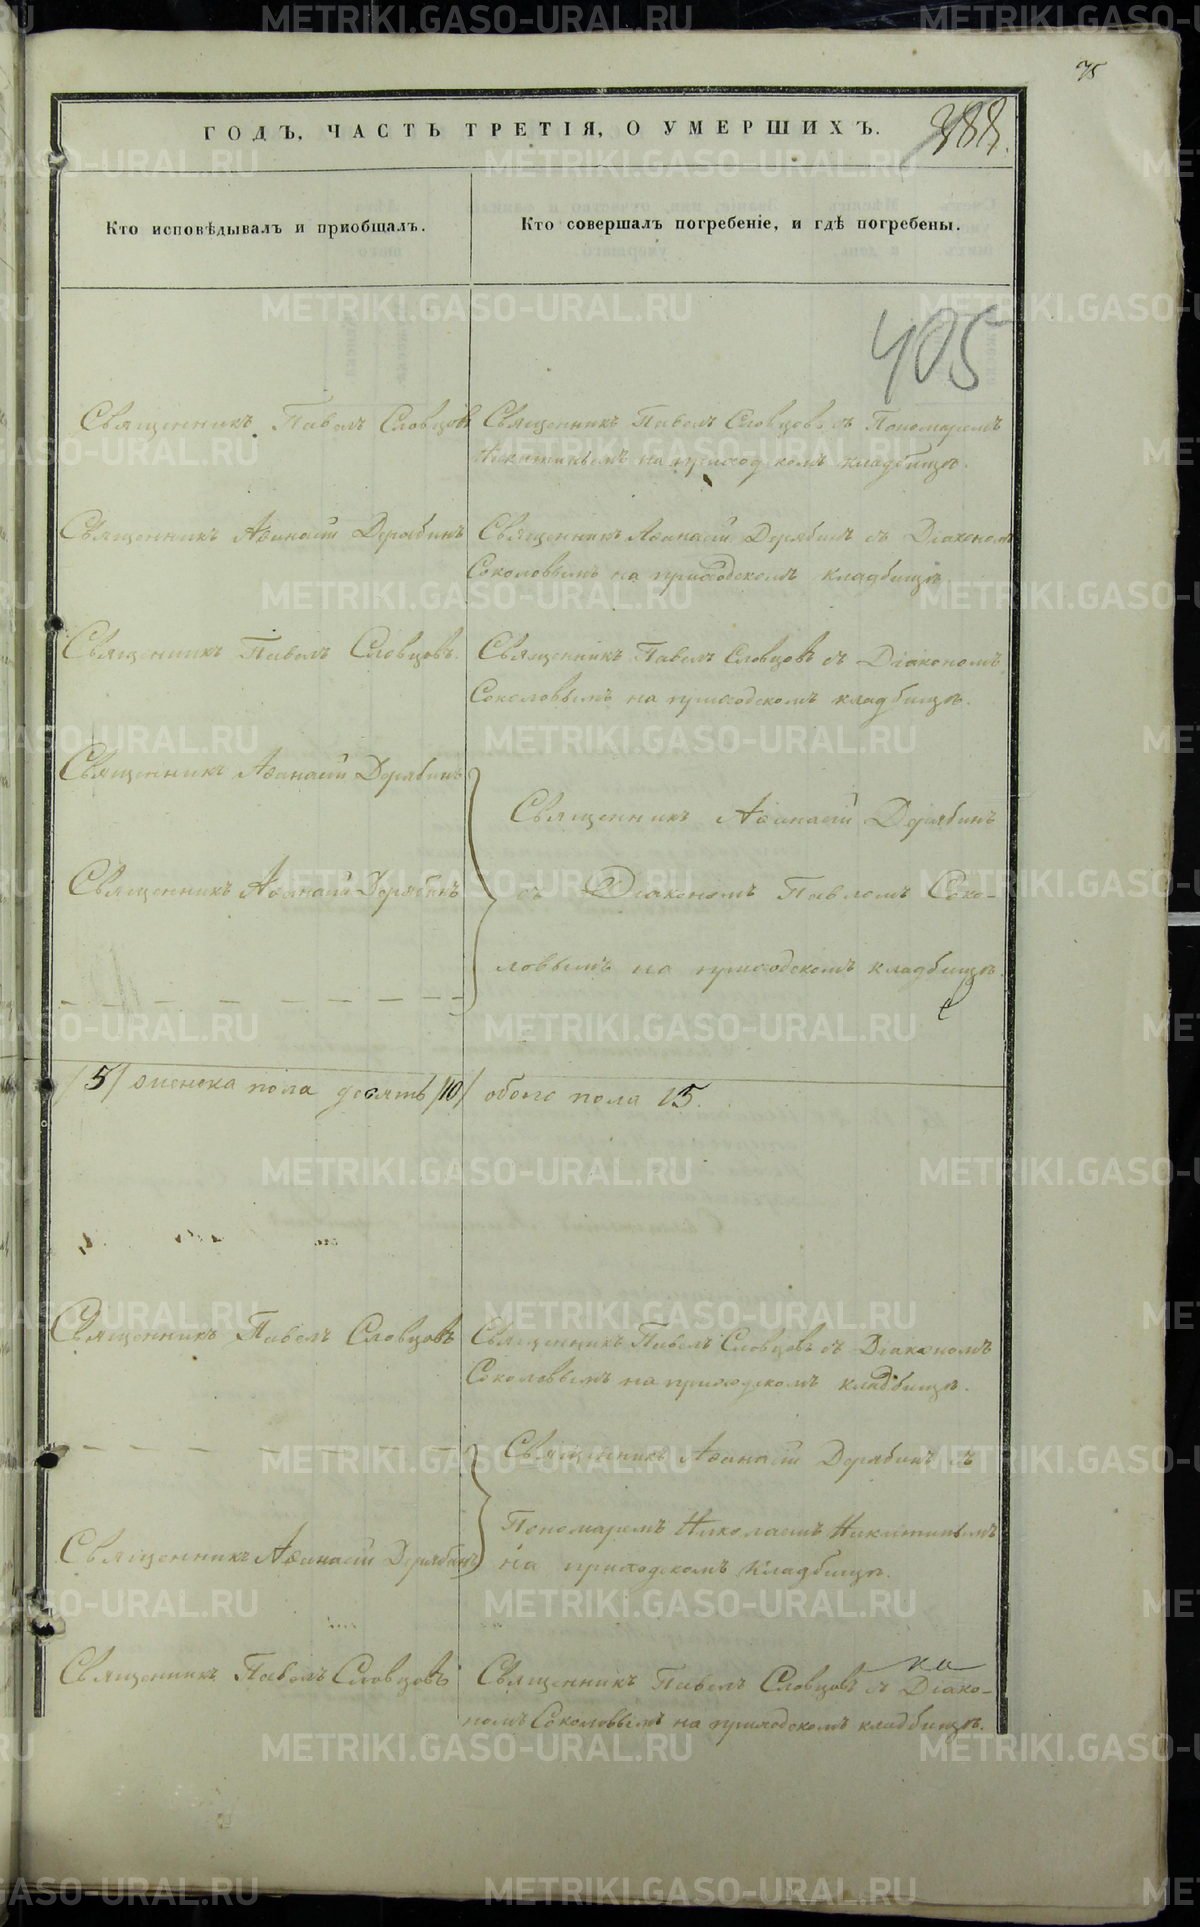 75
ГОДЪ, ЧАСТЬ ТРЕТІЯ, О УМЕРШИХЪ.
388.
Кто исповѣдывалъ и пріобщалъ.
Кто совершалъ погребеніе, и гдѣ погребены.
405
Священникъ Павелъ Словцовъ
Священникъ Павелъ Словцовъ съ Пономаремъ
Никитинымъ на приходскомъ кладбищѣ.
Священникъ Аѳанасій Дерябинъ
Священникъ Аѳанасій Дерябинъ съ Діакономъ
Соколовымъ на приходскомъ кладбищѣ.
Священникъ Павелъ Словцовъ.
Священникъ Павелъ Словцовъ съ Діакономъ
Соколовымъ на приходскомъ кладбищѣ.
Священникъ Аѳанасій Дерябинъ
Священникъ Аѳанасій Дерябинъ
Священникъ Аѳанасій Дерябинъ
съ Діакономъ Павломъ Соко-
ловымъ на приходскомъ кладбищѣ.
/5/ женска пола десять /10/ обоего пола 15.
Священникъ Павелъ Словцовъ
Священникъ Павелъ Словцовъ съ Діакономъ
Соколовымъ на приходскомъ кладбищѣ.
Священникъ Аѳанасій Дерябинъ съ
Пономаремъ Николаемъ Никитинымъ
на приходскомъ кладбищѣ.
Священникъ Аѳанасій Дерябинъ
Священникъ Павелъ Словцовъ
Священникъ Павелъ Словцовъ съ Діако-
номъ Соколовымъ на приходскомъ кладбищѣ.
METRIKI.GASO-URAL.RU